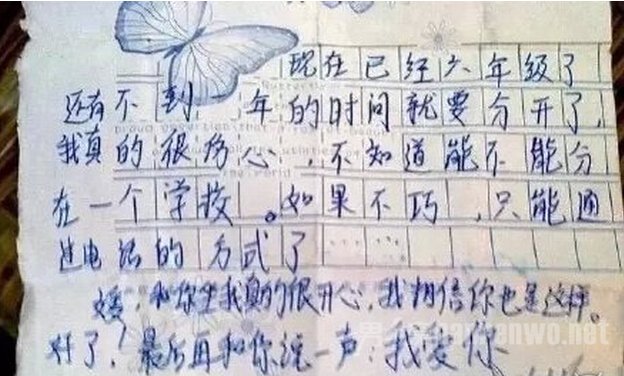 现在已经六年级了
还有不到 年的时间就要分开了,
我真的很伤心,不知道能不能分
在一个学校。如果不巧,只能通
过电话的方式了
媛,和你坐我真的很开心,我相信你也是这样。
好了!最后再和你说一声:我爱你